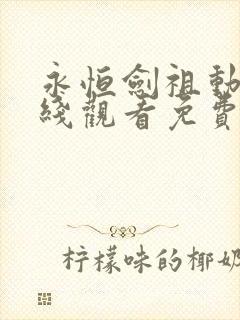 永恒劍祖動
綫觀看免費
柠檬味的椰奶